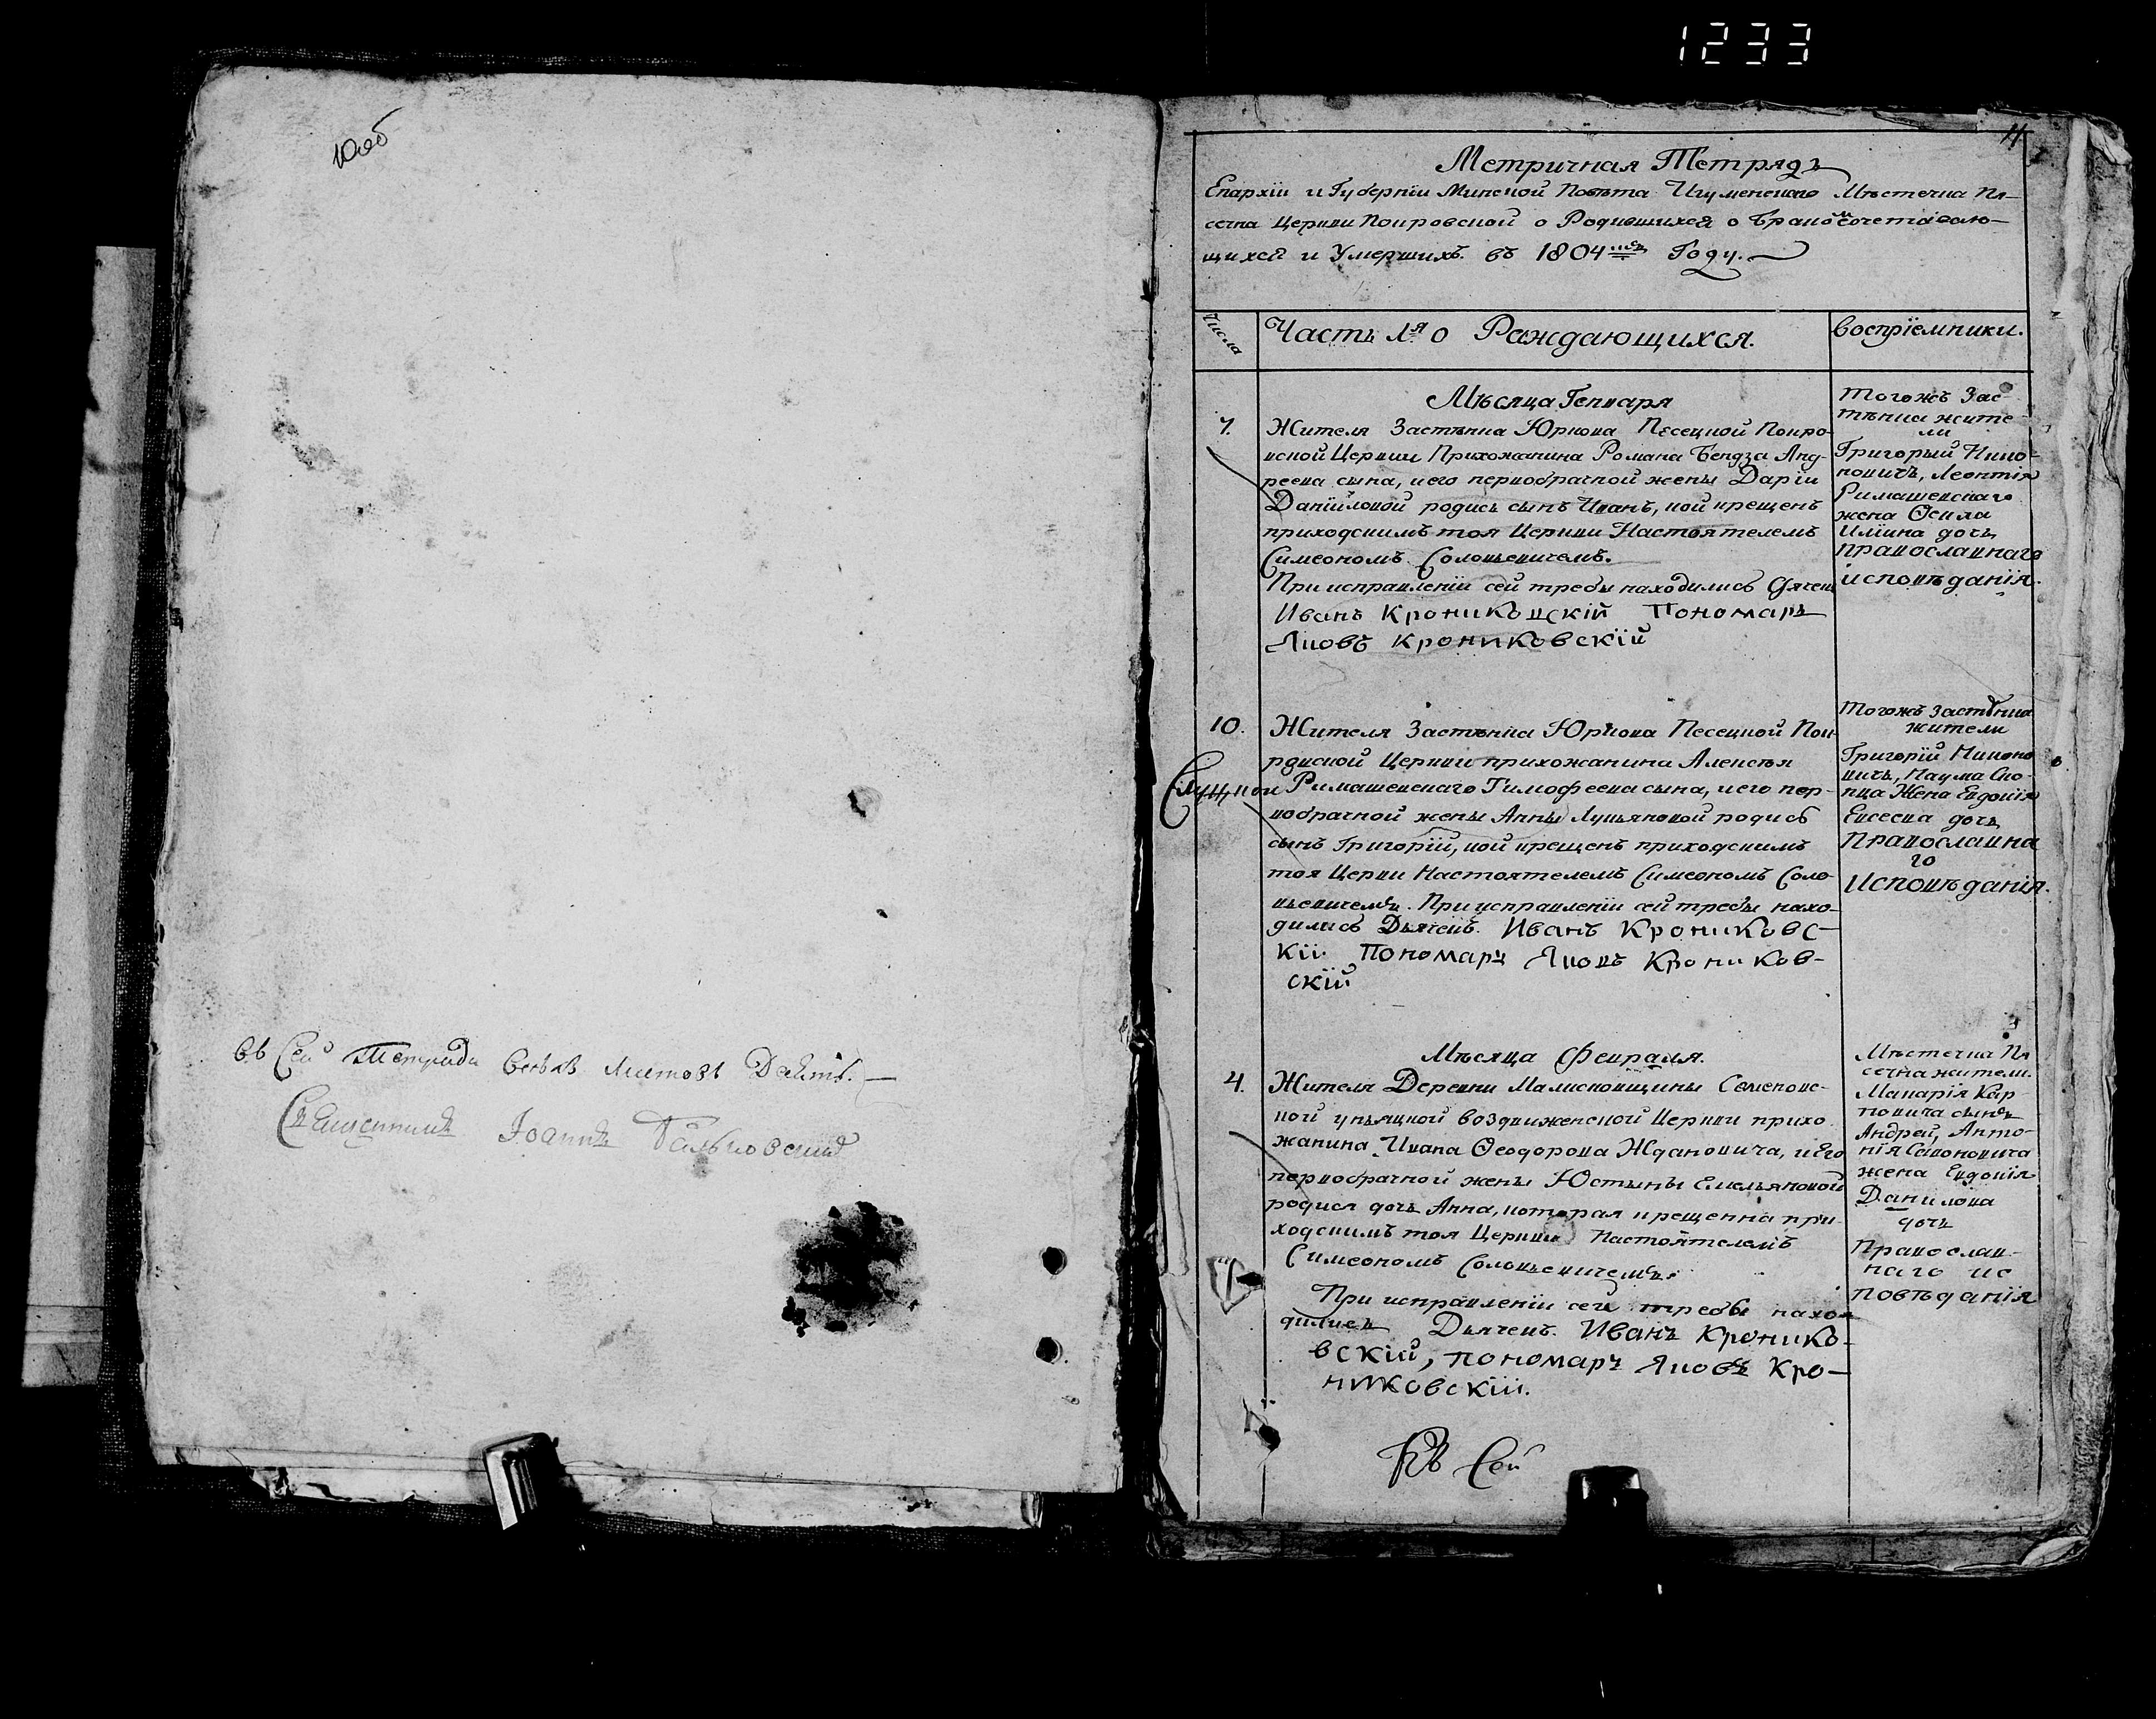 1233
10об
въ Сей Тетради всехъ листовъ Девять.
Священникъ Іоаннъ
11
Метричная Тетрадь
Епархіи и Губерніи Минской Повѣта Игуменскаго Мѣстечка Пѣ-
сечна Церкви Покровской о Родившихся о Бракомъ сочетаваю-
щихся и Умершихъ. въ 1804мъ Году.
Числа
Часть 1я о Раждающихся.
Воспріемники.
Мѣсяца Генваря
7.
Жителя Застѣнка Юркова Песецкой Покро-
вской Церкви Прихожанина Романа Бендза Анд-
реева сына, и его первобрачной жены Даріи
Даніиловой родись сынъ Иванъ, кой крещенъ
приходскимъ тоя Церкви Настоятелемъ
Симеономъ Соловьевичемъ.
При исправленіи сей требы находились Дячекъ
Иванъ Крониковскій Пономарь
Яковъ Крониковскій
Тогожъ Зас
тѣнка жите
ли
Григорый Нико-
новичъ, Леонтія
Римашевскаго
жена Фекла
Илиина дочь
православнаго
исповѣданія.
10.
Жителя Застѣнка Юркова Песецкой Пок
ровской Церкви прихожанина Алексѣя
Римашевскаго Тимофеева сына, и его пер-
вобрачной жены Анны Лукьяновой родись
сынъ Григорій, кой крещенъ приходскимъ
тоя Церкви Настоятелемъ Симеономъ Соло-
вьевичемъ. При исправленіи сей требы нахо-
дились Дьячекъ. Иванъ Крониковс-
кій. Пономарь Яковъ Кроников-
скій
Тогожъ Застѣнка
жители
Григорій Никоно
вичъ, Наума Ско-
пца Жена Евдокія
Евсеева дочь
Православна
го
Исповѣданія.
Мѣсяца Февраля.
4.
Жителя Деревни Малисковщины Семеновс-
кой уніяцкой Воздвиженской Церкви прихо
жанина Ивана Феодорова Ждановича, и Его
первобрачной жены Юстыны Емельяновой
родися дочь Анна, которая крещенна при-
ходскимъ тоя Церкви Настоятелемъ
Симеономъ Соловьевичемъ.
При исправленіи сей требы нахо-
дились Дьячекъ. Иванъ Кронико-
вскій, пономарь Яковъ Кро-
никовскій.
Мѣстечка Пѣ
сечна жители.
Макарія Кар-
повича сынъ
Андрей, Анто-
нія Симоновича
жена Евдокія
Данилова
дочь
Православ-
наго ис
повѣданія
Въ Сей